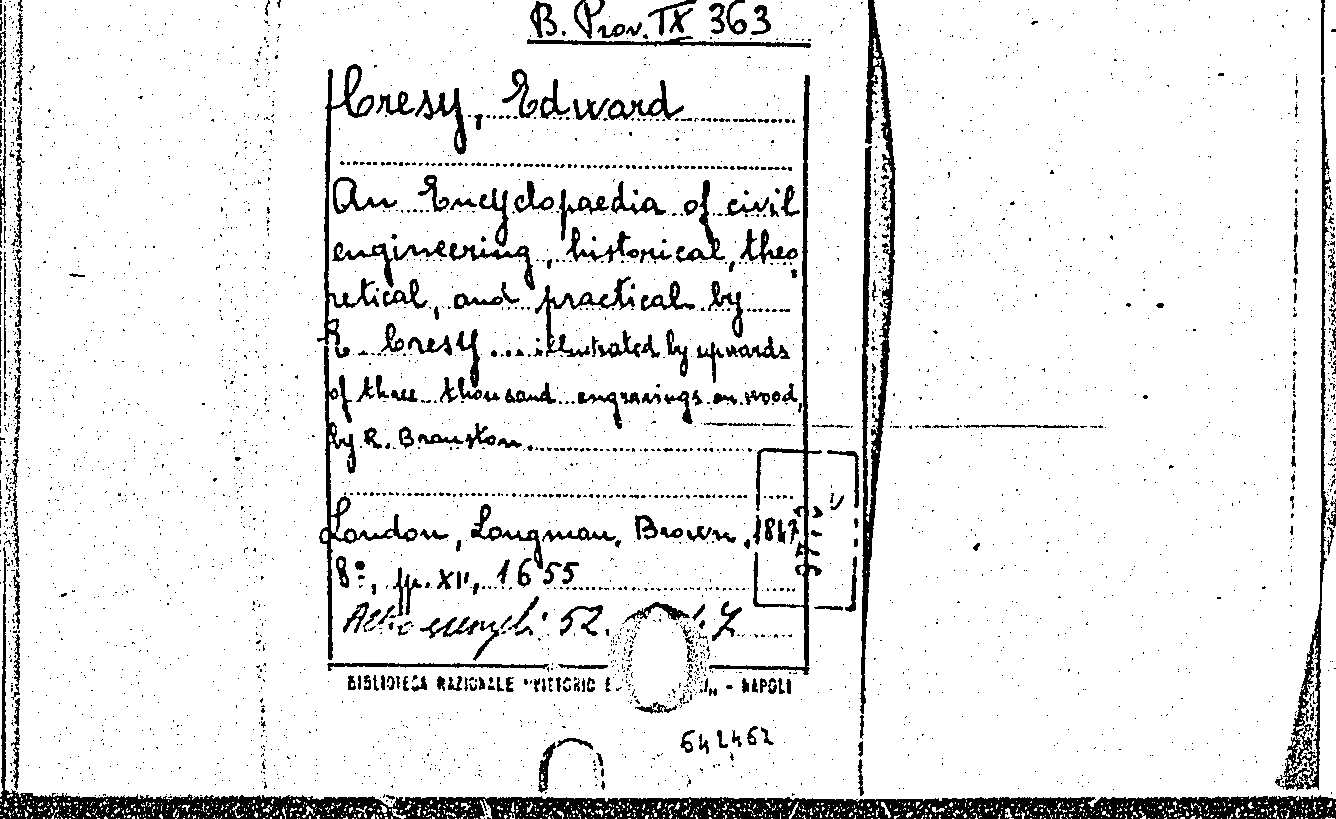 B. Prov. IX 363
Cresy, Edward
An Encyclopaedia of civil
engineering, historical, theo
retical, and practical by
E. Cresy ... illustrated by upwards
of three thousand engravings on wood,
by R. Branston.
London, Longman, Brown, 1847
8º, pp. XII, 1655
Altro esempl: 52.
BIBLIOTECA NAZIONALE "VITTORIO E - NAPOLI
642462